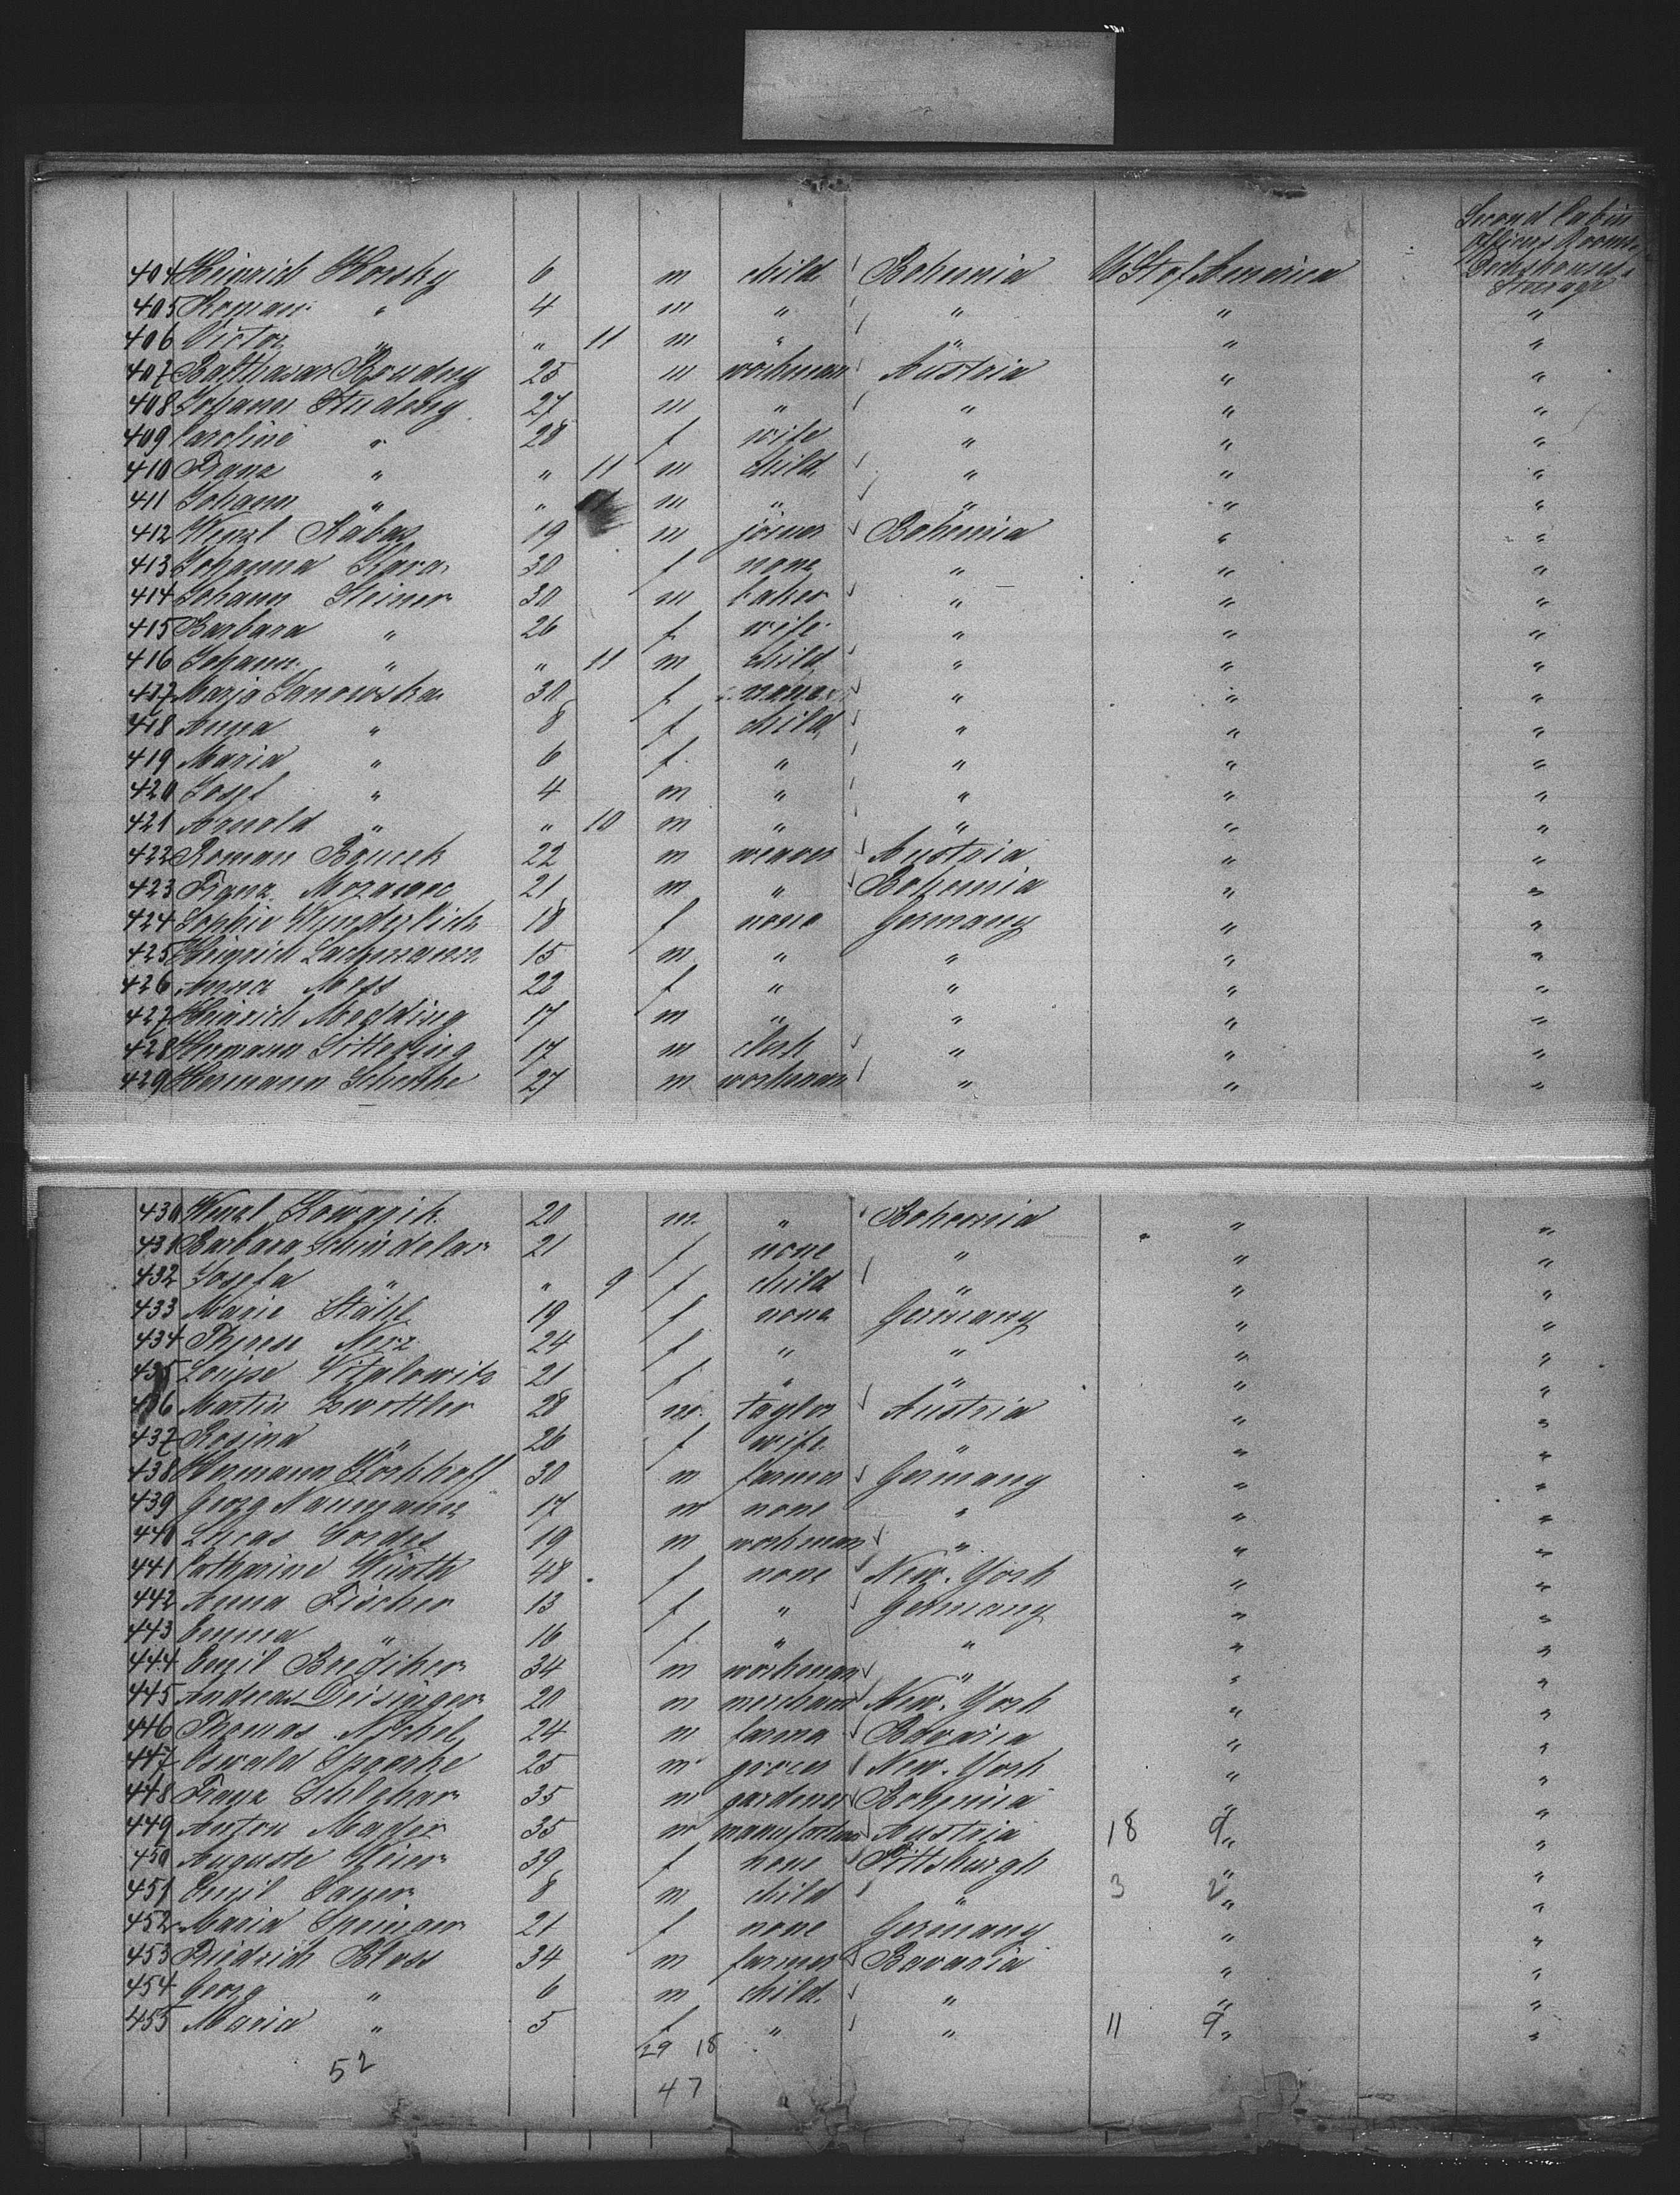 Second Cabin
Officers Rooms,
Deckhouses,
Steerage
404 Heinrich Horsky 6 m child Bohemia U St of America
405 Roman " 4 m " " " "
406 Victor " " 11 m " " " "
407 Balthasar 25 m workman Austria " "
408 Johann Studeny 27 m " " " "
409 Caroline " 28 f wife " " "
410 Franz " " 11 m child " " "
411 Johann " " 11 m " " " "
412 Wenzl Kabas 19 m joiner Bohemia " "
413 Johanna Kara 30 f none " " "
414 Johann Steiner 30 m baker " " "
415 Barbara " 26 f wife " " "
416 Johann " " 11 m child " " "
417 Maria Janowska 30 f none " " "
418 Anna " 8 f child " " "
419 Maria " 6 f " " " "
420 Josef " 4 m " " " "
421 Arnold " " 10 m " " " "
422 Roman Boucek 22 m weaver Austria " "
423 Franz 21 m " Bohemia " "
424 Sophie Wunderlich 18 f none Germany " "
425 Heinrich Lachmann 15 m " " " "
426 Anna Mess 22 f " " " "
427 Heinrich Medding 17 m " " " "
428 Hermann 17 m clerk " " "
429 Hermann Schütke 27 m workman " " "
430 Wenzl Kowarik 20 m " Bohemia " "
431 Barbara Schindelar 21 f none " " "
432 Josefa " " 9 f child " " "
433 Marie Stahl 19 f none Germany " "
434 Therese Merz 24 f " " " "
435 Louise 21 f " " " "
436 Martin Zwettler 28 m taylor Austria " "
437 Rosina " 26 f wife " " "
438 Hermann Körkhoff 30 m farmer Germany " "
439 Georg Naumann 17 m none " " "
440 Lucas Cordes 19 m workman " " "
441 Catharine Würth 48 f none New-York " "
442 Anna Fischer 13 f " Germany " "
443 Emma " 16 f " " " "
444 Emil 34 m workman " " "
445 Andreas Deisinger 20 m merchant New-York " "
446 Thomas Nickel 24 m farmer Bavaria " "
447 Oswald 25 m grocer New-York " "
448 Franz 35 m gardener Bohemia " "
449 Anton Mader 35 m Austria 18 9 " "
450 Auguste 39 f none Pittsburgh " "
451 Emil Sauer 8 m child " 3 2 " "
452 Maria Springer 21 f none Germany " "
453 Friedrich Bloss 34 m farmer Bavaria " "
454 Georg " 6 m child " " "
455 Maria " 5 f " " 11 9 " "
29 18
52
47